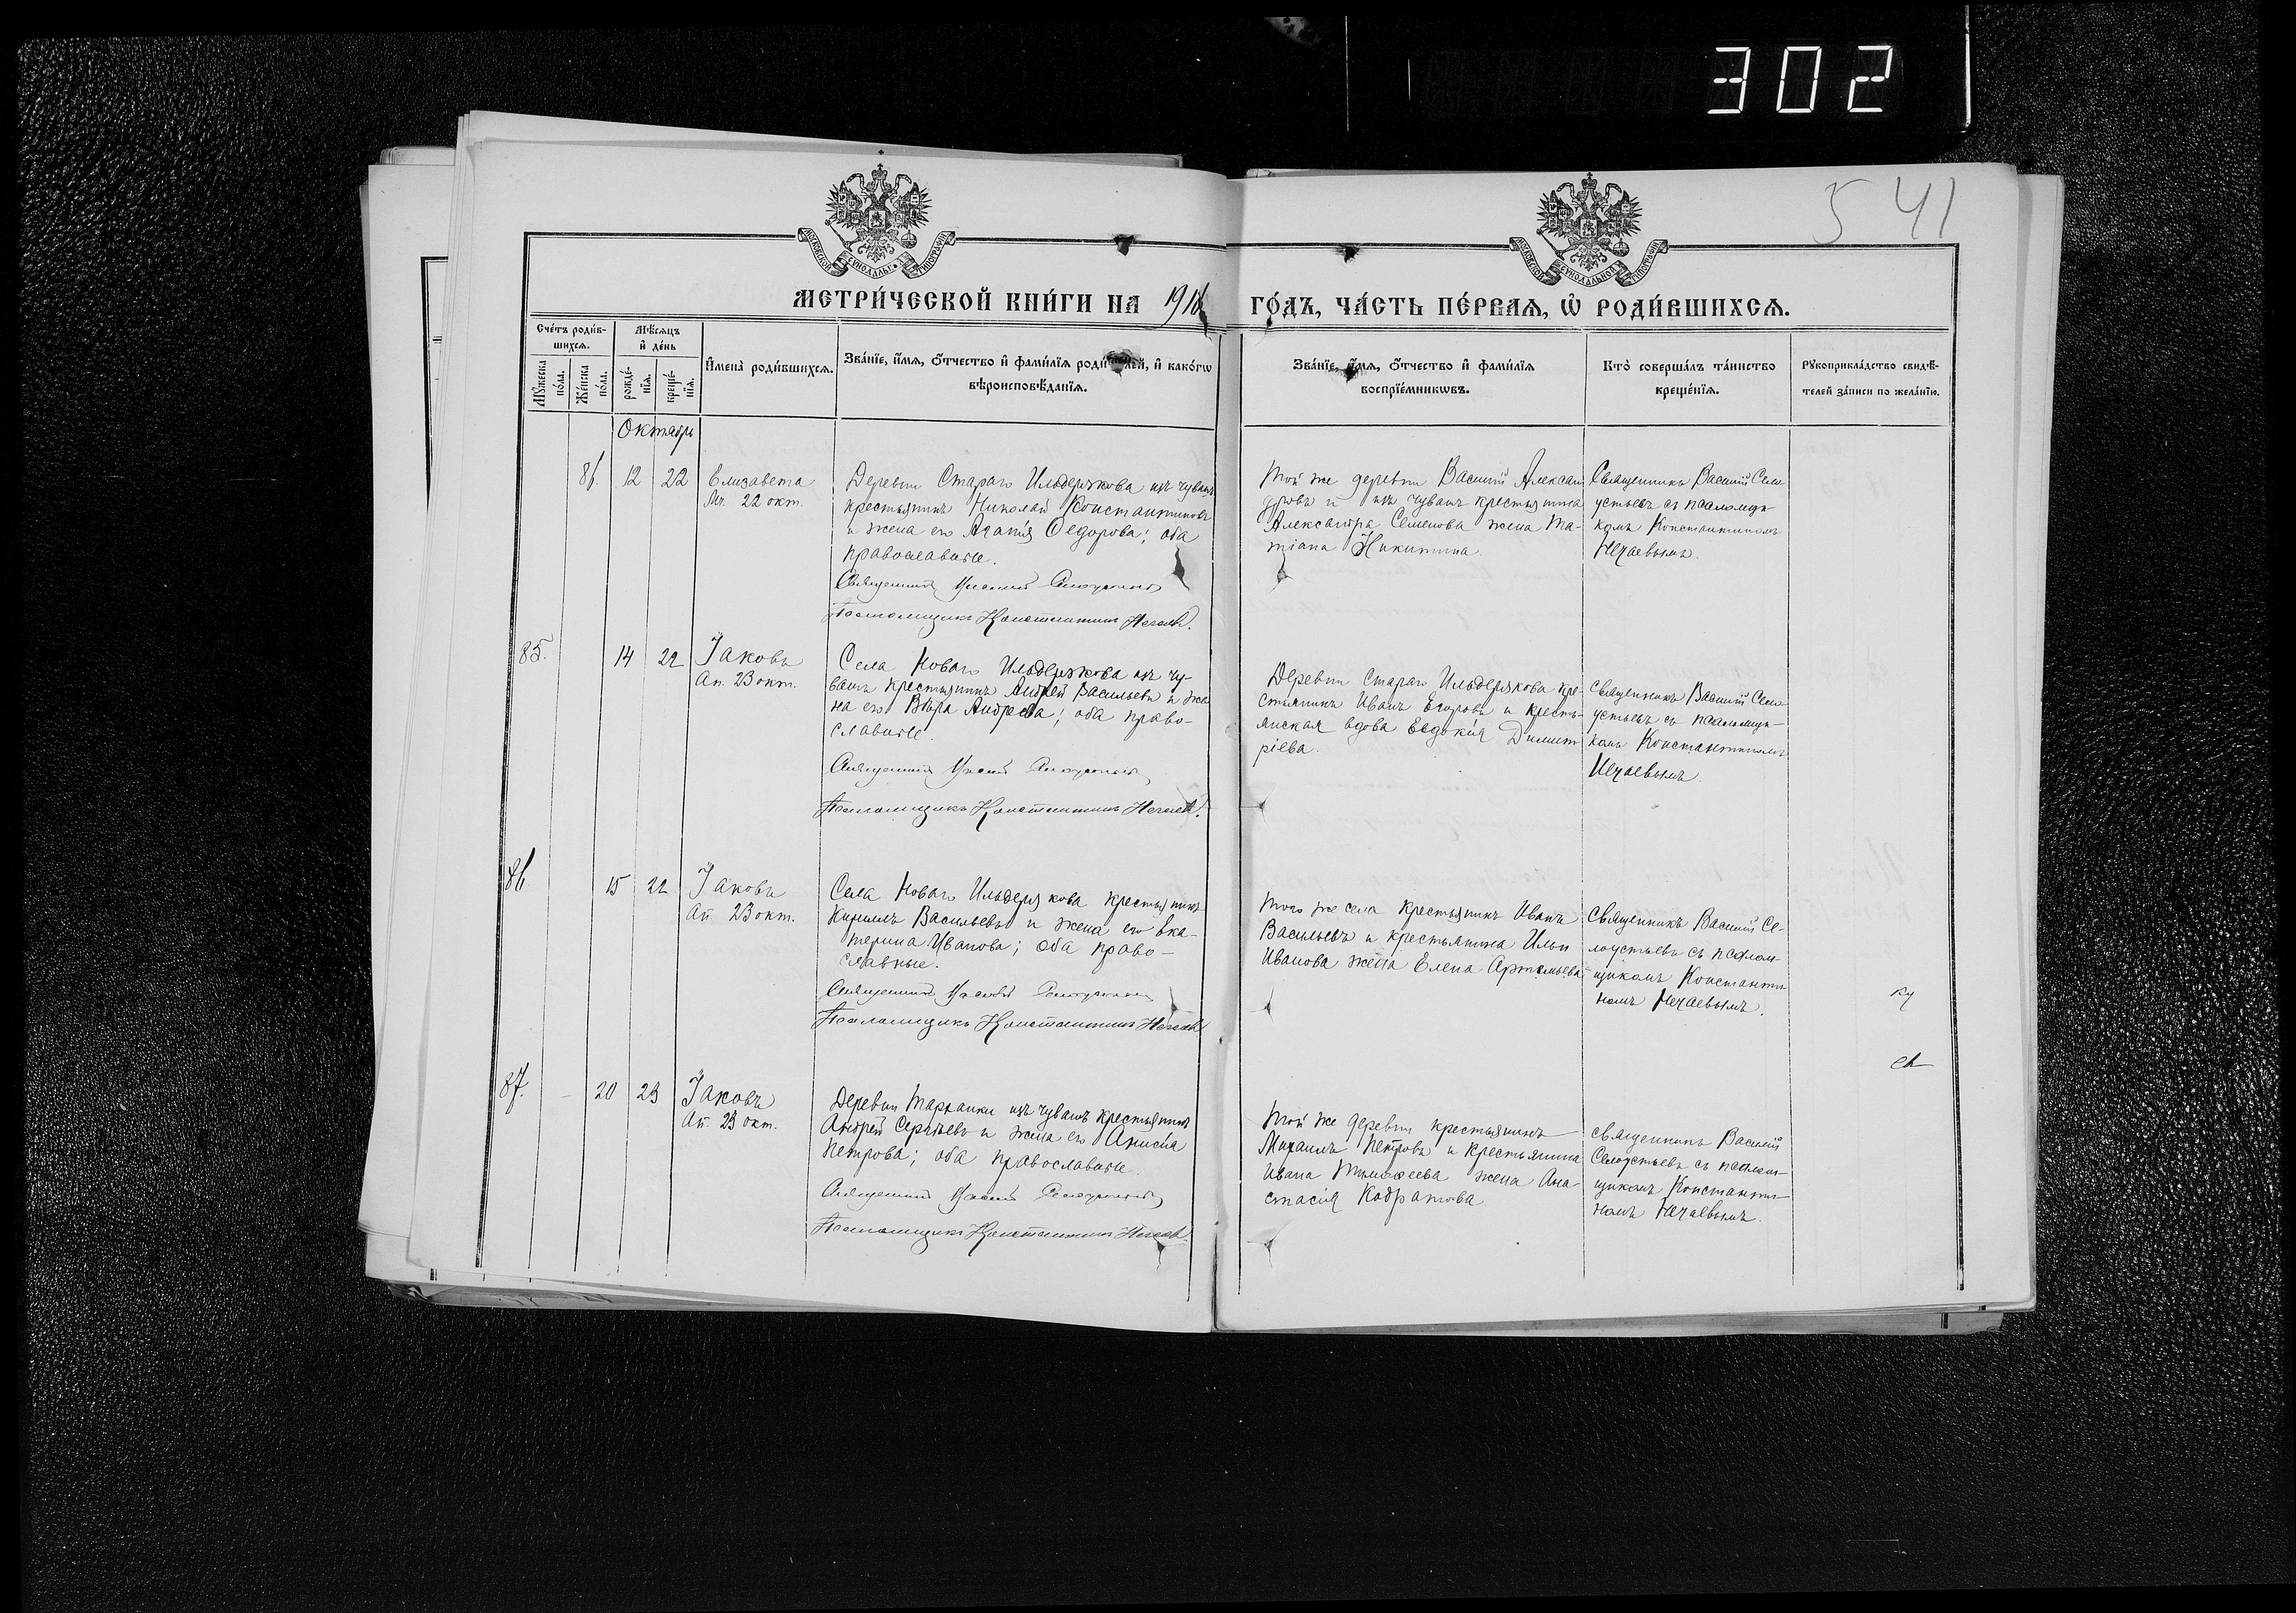 302
5 41
МЕТРИ́ЧЕСКОЙ КНИ́ГИ НА 1916 ГО́ДЪ, ЧА́СТЬ ПЕ́РВАЯ, Ѡ҆ РОДИ́ВШИХСЯ.
Сче́тъ роди́в-
шихся.
Мꙋ́жеска
по́ла.
Же́нска
по́ла.
Мѣ́сяцъ
и҆ де́нь
рожде́-
нїя.
креще́-
нїя.
И҆мена̀ роди́вшихся.
Зва́нїе, и҆́мя, ѻ҆́тчество и҆ фами́лїя роди́телей, и҆ како́гѡ
вѣроисповѣ́данїя.
Зва́нїе, и҆́мя, ѻ҆́тчество и҆ фами́лїя
воспрїе́мникѡвъ.
Кто̀ соверша́лъ та́инство
креще́нїя.
Рꙋкоприкла́дство свидѣ́-
телей за́писи по жела́нїю.
Октябрь
86. 12 22 Елизавета
Мч. 22 окт.
Деревни Стараго Ильдерякова изъ чувашъ
крестьянинъ Николай Константиновъ
и жена его Агапія Ѳедорова; оба
православные.
Священникъ
Псаломщикъ Константинъ Нечаевъ.
Той же деревни Василій Алексан
дровъ и изъ чувашъ крестьянина
Александра Семенова жена Та-
тіана Никитина.
Священникъ Василій Село
устьевъ съ псаломщи-
комъ Константиномъ
Нечаевымъ.
85. 14 22 Іаковъ
Ап. 23 окт.
Села Новаго Ильдерякова изъ чу-
вашъ крестьянинъ Андрей Васильевъ и же
на его Вѣра Андреева; оба право-
славные.
Священникъ
Псаломщикъ Константинъ Нечаевъ.
Деревни Стараго Ильдерякова кре-
стьянинъ Иванъ Егоровъ и кресть-
янская вдова Евдокія Димит
ріева.
Священникъ Василій Село
устьевъ съ псаломщи-
комъ Константиномъ
Нечаевымъ.
86 15 22 Іаковъ
Ап. 23 окт.
Села Новаго Ильдерякова крестьянинъ
Кириллъ Васильевъ и жена его Ека-
терина Иванова; оба право-
славные.
Священникъ
Псаломщикъ Константинъ Нечаевъ
Того же села крестьянинъ Иванъ
Васильевъ и крестьянина Ильи
Иванова жена Елена Артемьева
Священникъ Василій Се-
лоустьевъ съ псалом-
щикомъ Константи-
номъ Нечаевымъ.
87. – 20 23 Іаковъ
Ап. 23 окт.
Деревни Тарханки изъ чувашъ крестьянинъ
Андрей Сергѣевъ и жена его Анисія
Петрова; оба православные.
Священникъ
Псаломщикъ Константинъ Нечаевъ.
Той же деревни крестьянинъ
Михаилъ Петровъ и крестьянина
Ивана Тимоѳеева жена Ана-
стасія Кодратова.
Священникъ Василій
Селоустьевъ съ псалом-
щикомъ Константи-
номъ Нечаевымъ.